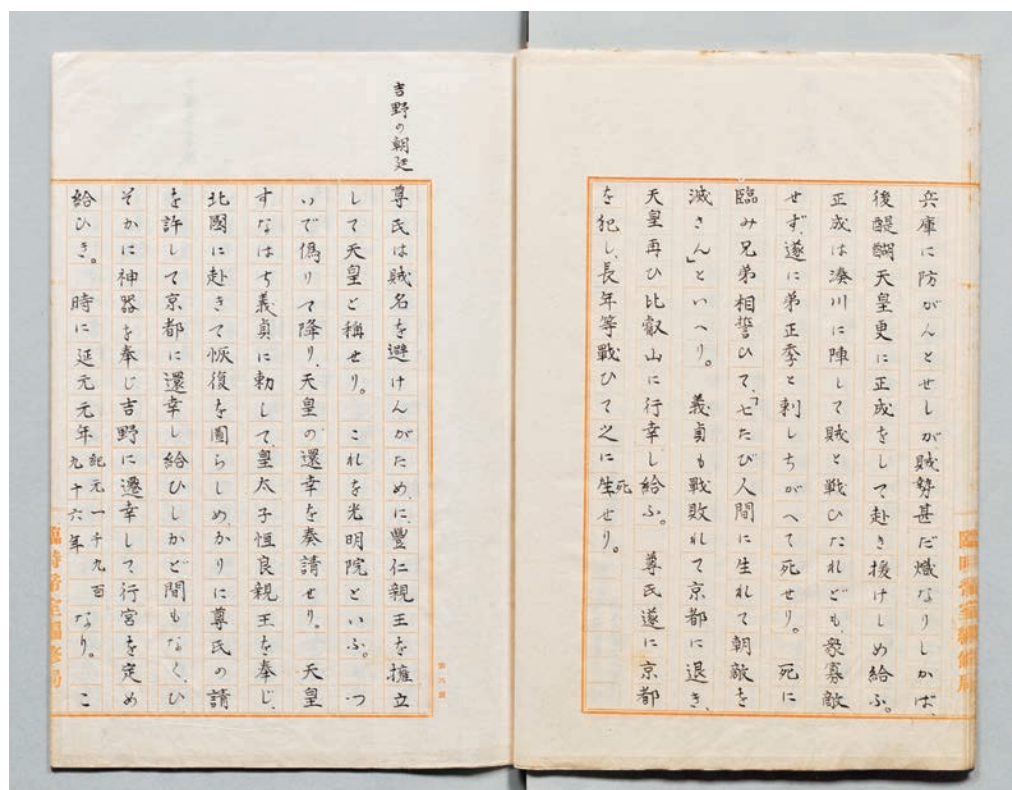 兵庫に防がんとせしが賊勢甚だ熾なりしかば、
後醍醐天皇更に正成をして赴き援けしめ給ふ。
正成は湊川に陣して賊と戰ひたれども、衆寡敵
せず、遂に弟正季と刺しちがへて死せり。 死に
臨み兄弟相誓ひて、「七たび人間に生れて朝敵を
滅さん」といへり。 義貞も戰敗れて京都に退き、
天皇再ひ比叡山に行幸し給ふ。 尊氏遂に京都
を犯し、長年等戰ひて之に死せり。
吉野の朝廷
尊氏は賊名を避けんがため、に豐仁親王を擁立
して天皇と稱せり。 これを光明院といふ。 つ
いで僞りて降り、天皇の還幸を奏請せり。 天皇
すなはち義貞に勅して、皇太子恒良親王を奉じ、
北國に赴きて恢復を圖らしめ、かりに尊氏の請
を許して京都に還幸し給ひしかど間もなく、ひ
そかに神器を奉じ吉野に遷幸して行宮を定め
給ひき。 時に延元元年紀元一千九百九十六年なり。 こ
臨時帝室編修局
臨時帝室編修局